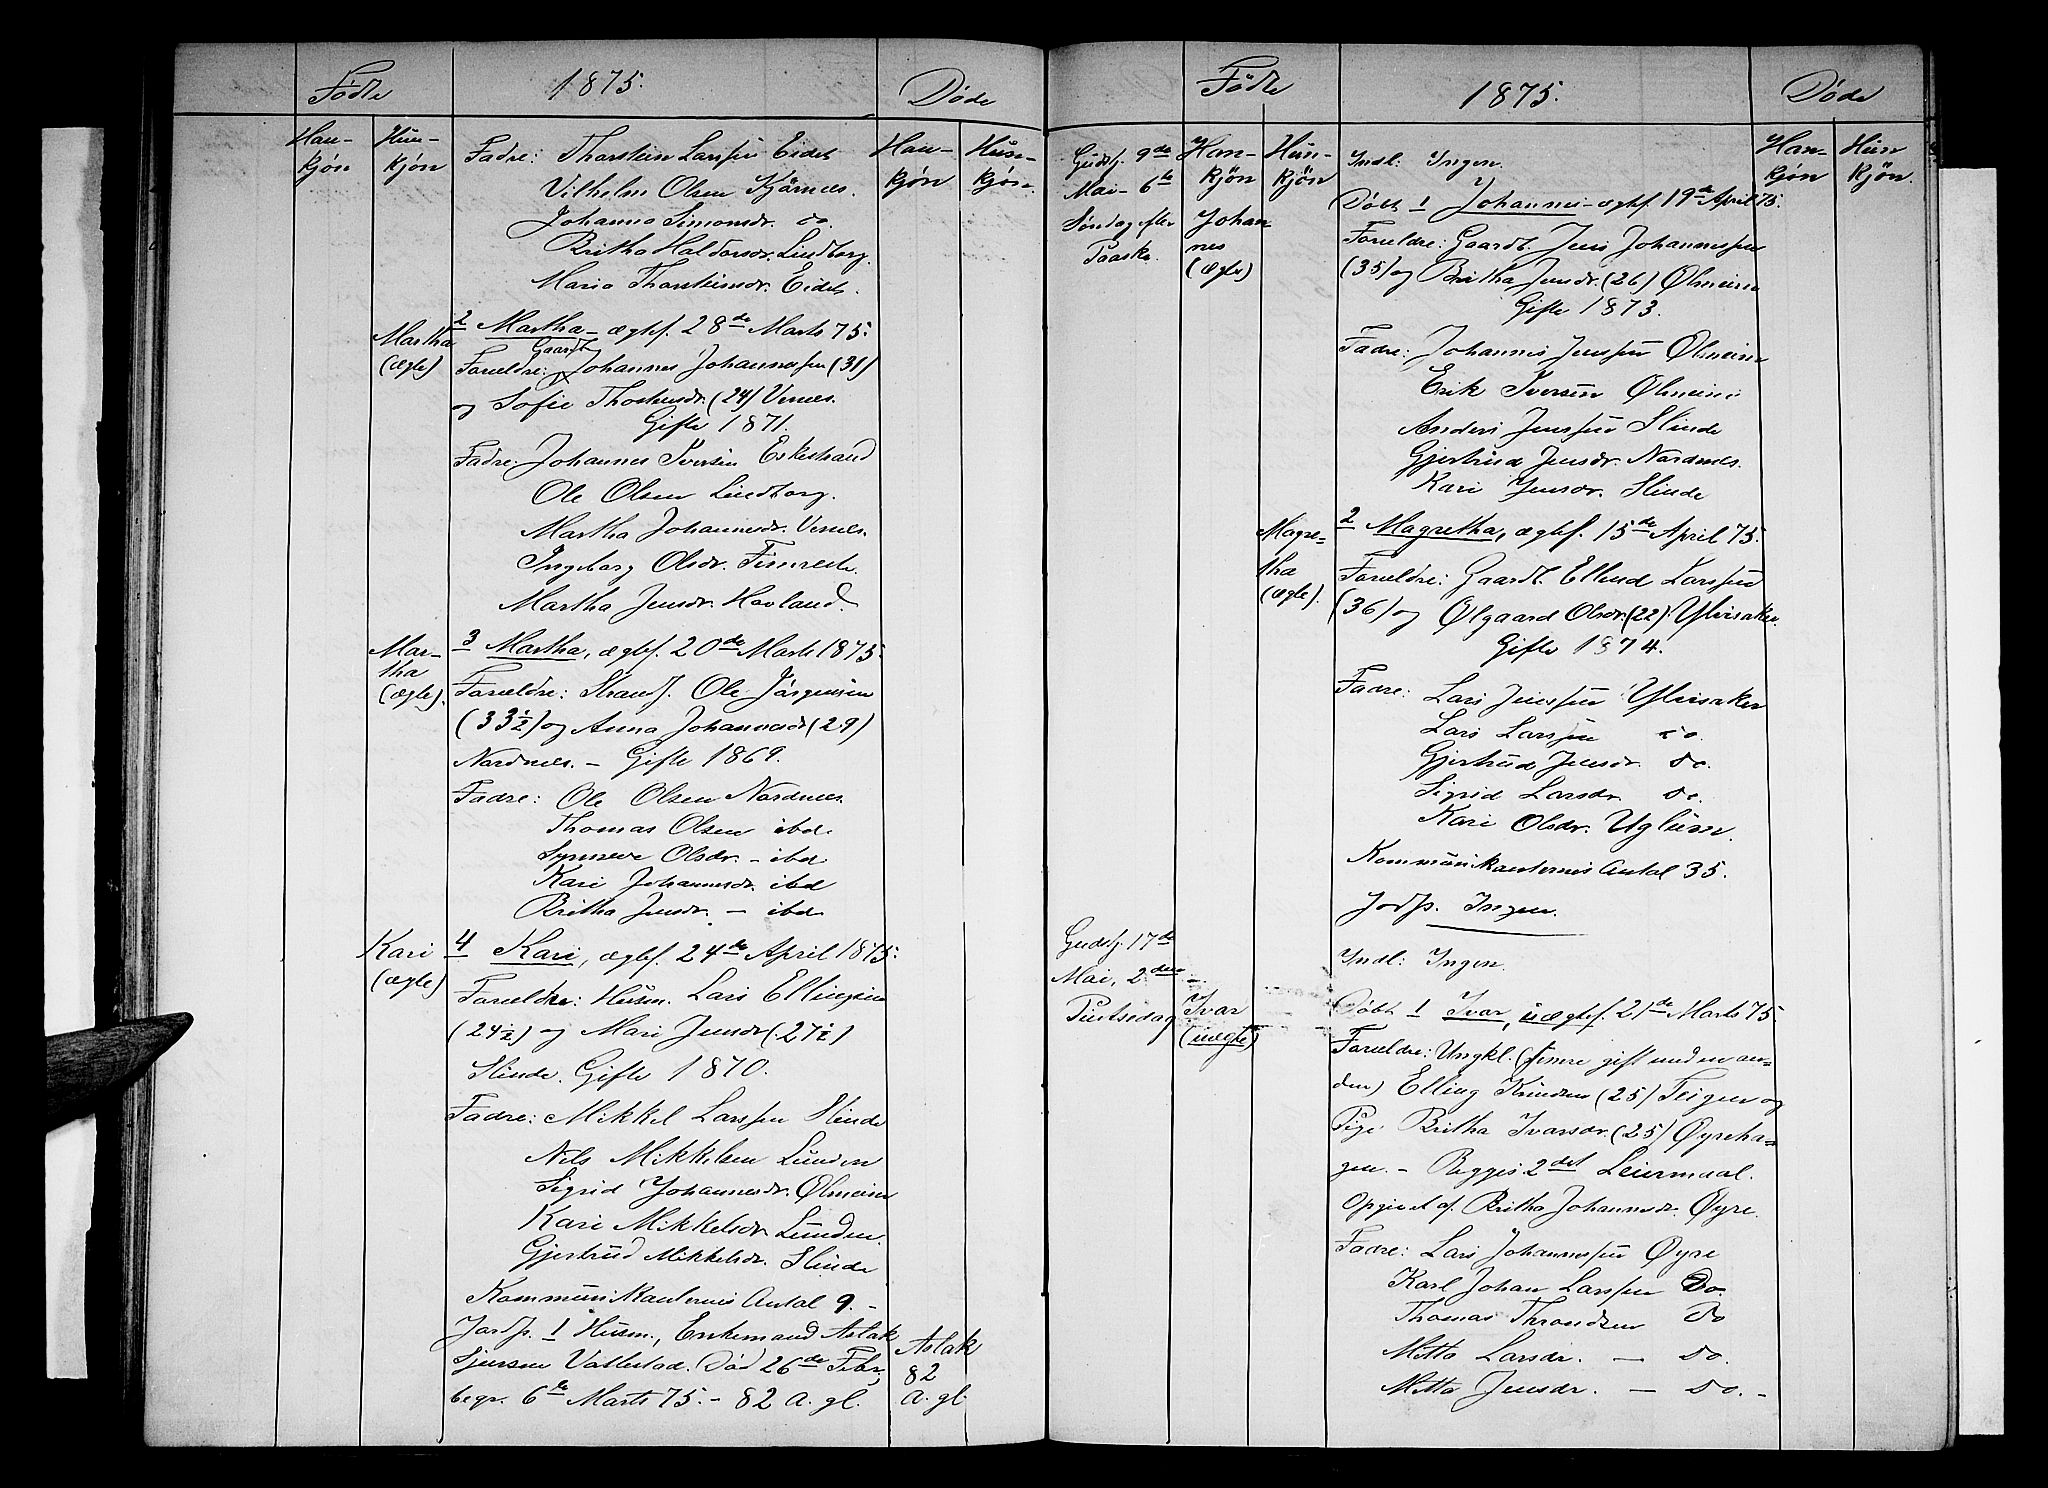 Födte
1875.
Døde
Han-
kjøn
Hun-
kjøn
Fadre: Thorstein Larssen Eidet
Han-
kjøn
Hun-
kjøn
Vilhelm Olsen Kjørnes.
Johanna Simonsdr. do.
Britha Haldorsdr. Lindborg.
Maria Thorsteinsdr. Eidet.
Martha
(ægte)
2 Martha - ægtef. 28de Marts 75.
Gaardb.
Forældre: Johannes Johannessen (31)
og Sofie Thordr. (24) Vernes.
Gifte 1871.
Fadre: Johannes Iversen Eikestrand
Ole Olsen Lindborg.
Martha Johannesdr. Vernes.
Ingeborg Olsdr. Fimreite.
Martha Jensdr. Havland.
Mar-
tha
(ægte).
3 Martha, ægtef. 20de Marts 1875.
Forældre: Strands. Ole Jørgensen
(33½) og Anna Johannesdr (29)
Nordnes. - Gifte 1869.
Fadre: Ole Olsen Nordnes.
Thomas Olsen ibd.
Synneve Olsdr. - ibd.
Kari Johannesdr. ibd
Britha Jensdr. - ibd.
Kari
(ægte)
4 Kari, ægtef. 24de April 1875.
Forældre: Husm. Lars Ellingsen
(24½) og Mari Jensdr (27½)
Slinde. Gifte 1870.
Fadre: Mikkel Larssen Slinde
Nils Mikkelsen Lunden
Sigrid Johannesdr. Ølmeim
Kari Mikkelsdr. Lunden.
Gjertrud Mikkelsdr. Slinde
Kommunikanternes Antal 9. -
Jordf. 1 Husm., Enkemand Aslak
Sjursen Vallestad. Död 26de Febr.,
begr. 6te Marts 75. - 82 A. gl.
Aslak
82
A. gl
Födte
1875.
Døde
Gudstj. 9de
Mai - 6te
Søndag efter
Paaske.
Han-
kjön
Hun-
kjön
Johan
nes
(ægte)
Indl: Ingen.
Han-
kjøn
Hun
kjøn.
Døbt 1 Johannes - ægtef. 19de April 75.
Forældre: Gaardb. Jens Johannessen
(35) og Britha Jensdr. (26) Ølmeim
Gifte 1873.
Fadre: Johannes Jenssen Ølmeim
Erik Iversen Ølmeim
Anders Jenssen Slinde
Gjertrud Jensdr. Nordnes.
Kari Jensdr. Slinde
Magre-
tha
(ægte).
2 Magretha, ægtef. 15de April 75.
Forældre: Gaardb. Ellend Larssen
(36) og Ølgaard Olsdr. (22) Ylvisaker.
Gifte 1874.
Fadre: Lars Jenssen Ylvisaker
Lars Larssen do.
Gjertrud Jensdr. do.
Sigrid Larsdr. do.
Kari Olsdr. Uglum.
Kommunikanternes Antal 35.
Jordf. Ingen.
Gudstj. 17de
Mai, 2den
Pintsedag
Ivar
(uægte)
Indl: Ingen.
Døbt 1 Ivar, uægtef. 21de Marts 75.
Forældre: Ungkl. (senere gift med en an-
den) Elling Knudsen (25) Teigen og
Pige Britha Ivarsdr. (25) Øyreha-
gen. - Begges 2det Leiermaal.
Opgivet af Britha Johannesdr. Øyre.
Fadre: Lars Johannessen Øyre
Karl Johan Larssen Do
Thomas Throndsen Do
Mitta Larsdr. - Do.
Mitta Jensdr. - Do. -